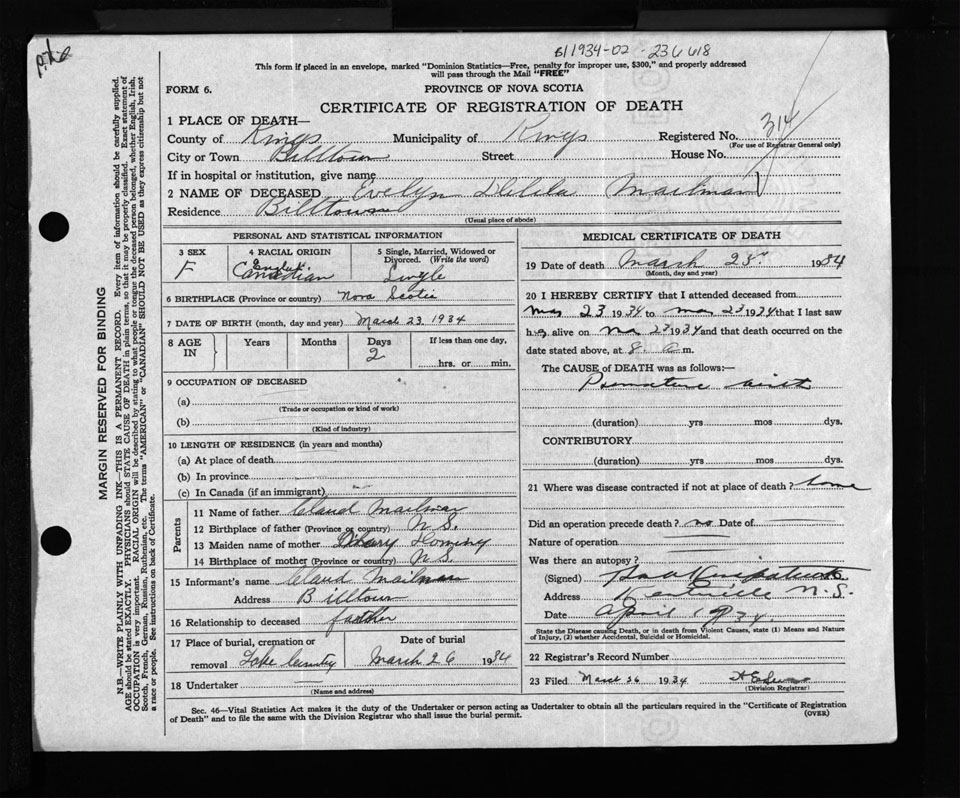 1934-02 - 236618
This form if placed in an envelope, marked "Dominion Statistics—Free, penalty for improper use, $300," and properly addressed
will pass through the Mail "FREE"
FORM 6.
PROVINCE OF NOVA SCOTIA
CERTIFICATE OF REGISTRATION OF DEATH
1 PLACE OF DEATH—
County of Kings Municipality of Kings Registered No. 314
(For use of Registrar General only)
City or Town Billtown Street House No.
If in hospital or institution, give name
2 NAME OF DECEASED Evelyn Delila Mailman
Residence Billtown
(Usual place of abode)
PERSONAL AND STATISTICAL INFORMATION
3 SEX 4 RACIAL ORIGIN 5 Single, Married, Widowed or
Divorced. (Write the word)
F Canadian Single
6 BIRTHPLACE (Province or country) Nova Scotia
7 DATE OF BIRTH (month, day and year) March 23 1934
8 AGE IN Years Months Days If less than one day,
2
hrs. or min.
9 OCCUPATION OF DECEASED
(a)
(Trade or occupation or kind of work)
(b)
(Kind of industry)
10 LENGTH OF RESIDENCE (in years and months)
(a) At place of death
(b) In province
(c) In Canada (if an immigrant)
Parents
11 Name of father Claud Mailman
12 Birthplace of father (Province or country) N.S.
13 Maiden name of mother
14 Birthplace of mother (Province or country) N.S.
15 Informant's name Claud Mailman
Address Billtown
16 Relationship to deceased father
17 Place of burial, cremation or Date of burial
removal Lake March 26 1934
18 Undertaker
(Name and address)
MEDICAL CERTIFICATE OF DEATH
19 Date of death March 25 1934
(Month, day and year)
20 I HEREBY CERTIFY that I attended deceased from
Mar 23 1934 to Mar 23 1934 that I last saw
h alive on 23 1934 and that death occurred on the
date stated above, at 8 a m.
The CAUSE of DEATH was as follows:—
Premature birth
(duration) yrs mos dys.
CONTRIBUTORY
(duration) yrs. mos dys.
21 Where was disease contracted if not at place of death? home
Did an operation precede death? no Date of
Nature of operation
Was there an autopsy?
(Signed)
Address Kentville N.S.
Date April 1934
State the Disease causing Death, or in death from Violent Causes, state (1) Means and Nature
of Injury, (2) whether Accidental, Suicidal or Homicidal.
22 Registrar's Record Number
23 Filed March 26 1934
(Division Registrar)
Sec. 46—Vital Statistics Act makes it the duty of the Undertaker or person acting as Undertaker to obtain all the particulars required in the "Certificate of Registration
of Death" and to file the same with the Division Registrar who shall issue the burial permit.
(OVER)
MARGIN RESERVED FOR BINDING
N.B.—WRITE PLAINLY WITH UNFADING INK—THIS IS A PERMANENT RECORD. Every item of information should be carefully supplied.
AGE should be stated EXACTLY. PHYSICIANS should STATE CAUSE OF DEATH in plain terms, so that it may be properly classified. Exact statement of
OCCUPATION is very important. RACIAL ORIGIN will be described by stating to what people or tongue the deceased person belonged, whether English, Irish,
Scotch, French, German, Russian, Ruthenian, etc. The terms "AMERICAN" or "CANADIAN" SHOULD NOT BE USED as they express citizenship but not
a race or people. See instructions on back of Certificate.